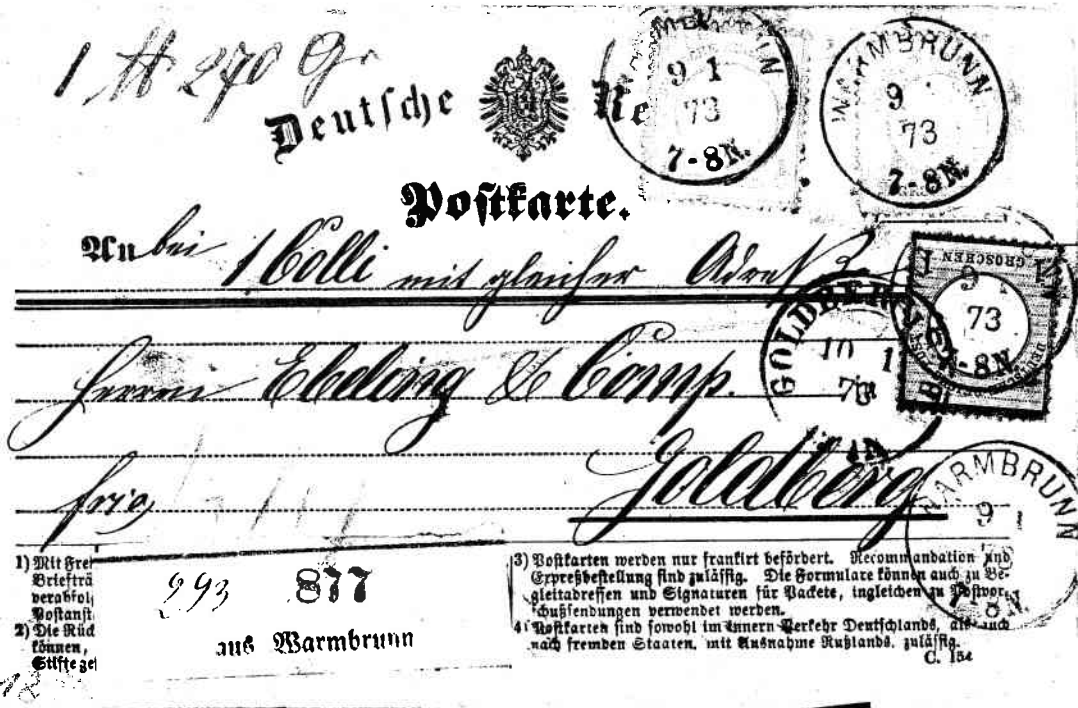 1 ℔ 270 Gr
Deutsche Re
Postkarte.
WARMBRUNN
9 1
73
7-8N.
WARMBRUNN
9
73
7-8N.
An bei 1 Colli mit gleicher Adreß
1 GROSCHEN 1
9
73
7-8N
Herren Ebeling & Comp.
GOLDBERG
10 1
73
Goldberg
frco
WARMBRUNN
9 1
7-8N
1) Mit Frei
Briefträ
verabfol
Postanst
2) Die Rück
können,
Stifte gel
293 877
aus Warmbrunn
3) Postkarten werden nur frankirt befördert. Recommandation und
Expreßbestellung sind zulässig. Die Formulare können auch zu Be-
gleitadressen und Signaturen für Packete, ingleichen zu Postvor-
schußsendungen verwendet werden.
4) Postkarten sind sowohl im innern Verkehr Deutschlands, als auch
nach fremden Staaten, mit Ausnahme Rußlands, zulässig.
C. 154